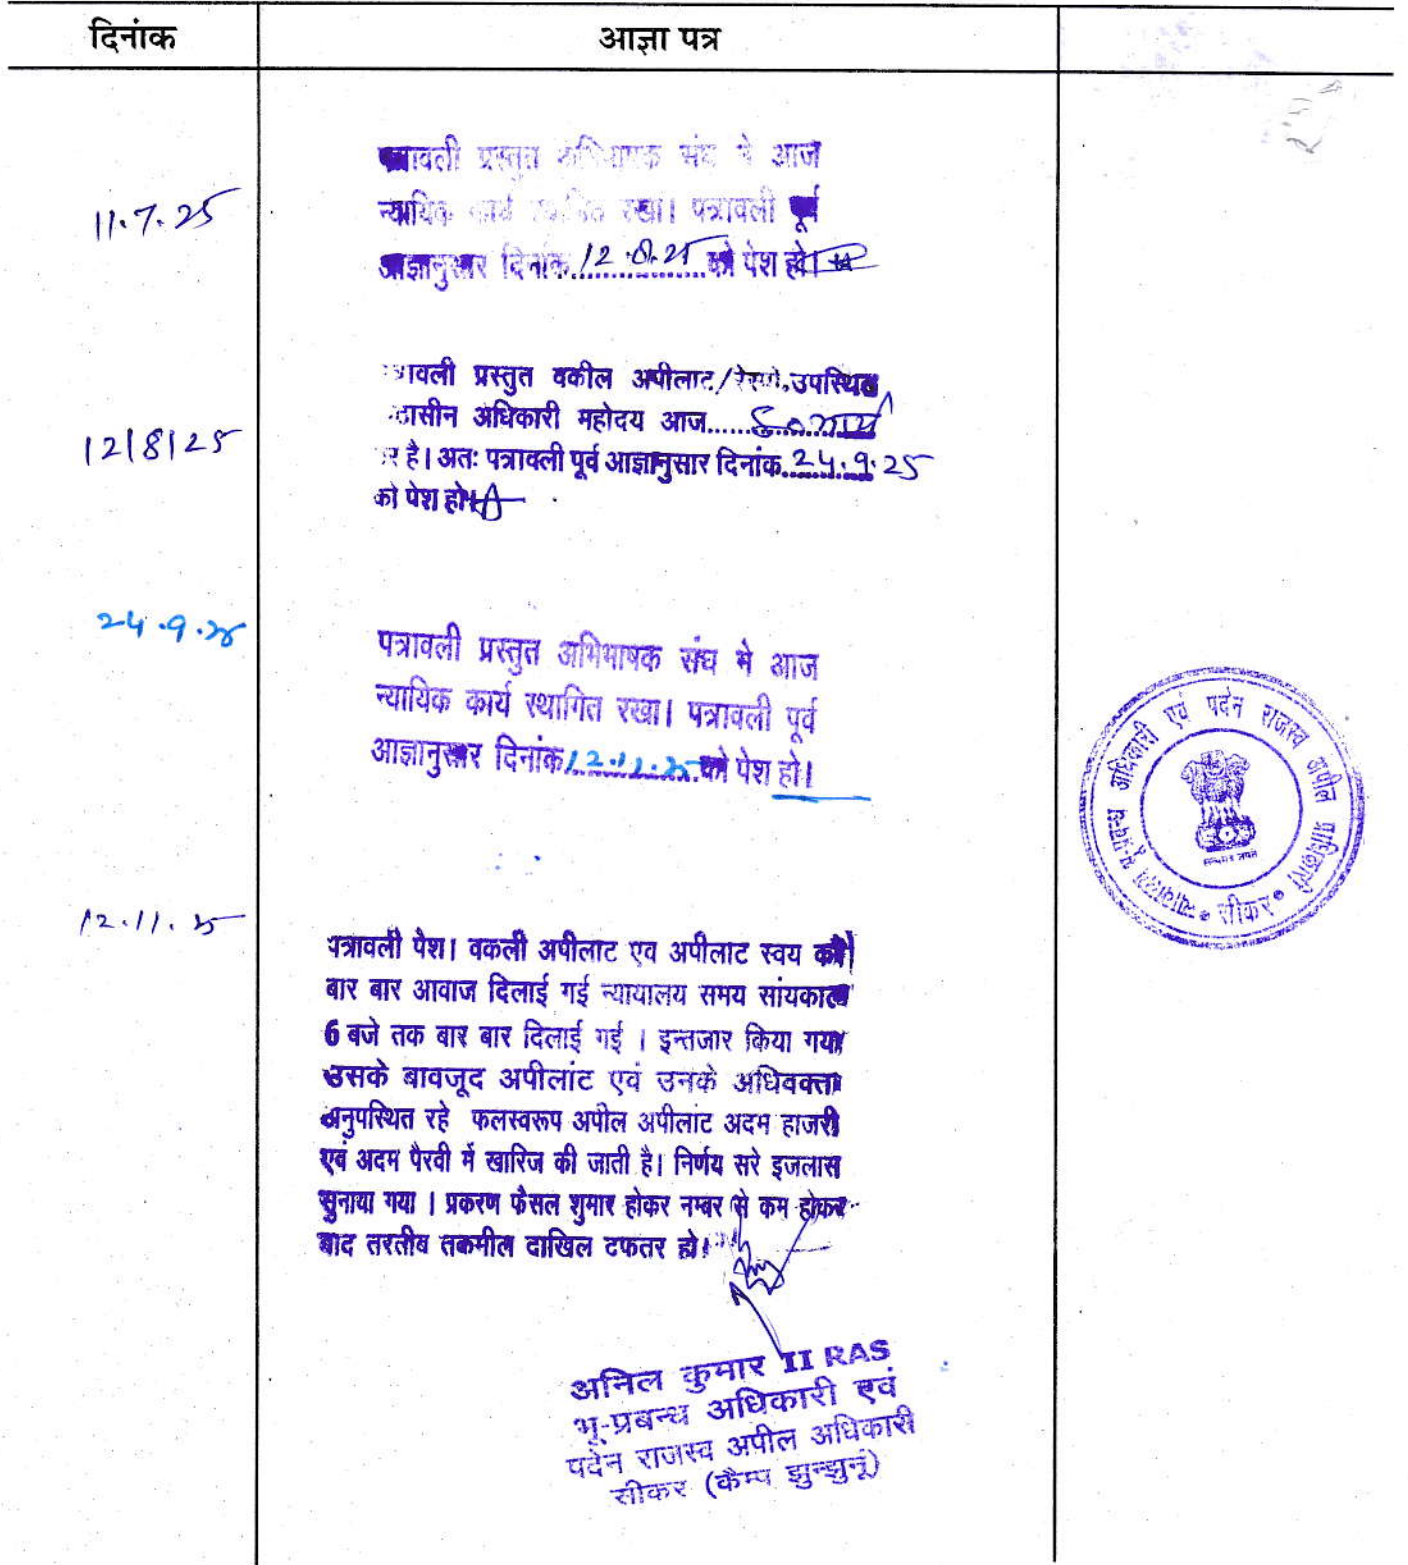 दिनांक
आज्ञा पत्र
11.7.25
पत्रावली प्रस्तुत अभिभाषक संघ ने आज
न्यायिक कार्य स्थगित रखा। पत्रावली पूर्व
आज्ञानुसार दिनांक 12.8.25 को पेश हो।
12/8/25
पत्रावली प्रस्तुत वकील अपीलाट/रेस्पो.उपस्थित
अधिकारी महोदय आज......
है। अतः पत्रावली पूर्व आज्ञानुसार दिनांक 24.9.25
को पेश हो।
24.9.25
पत्रावली प्रस्तुत अभिभाषक संघ मे आज
न्यायिक कार्य स्थागित रखा। पत्रावली पूर्व
आज्ञानुसार दिनांक 12.11.25 को पेश हो।
12.11.25
पत्रावली पेश। वकली अपीलाट एव अपीलाट स्वय को
बार बार आवाज दिलाई गई न्यायालय समय सांयकाल
6 बजे तक बार बार दिलाई गई । इन्तजार किया गया
उसके बावजूद अपीलांट एवं उनके अधिवक्ता
अनुपस्थित रहे फलस्वरूप अपील अपीलांट अदम हाजरी
एवं अदम पैरवी में खारिज की जाती है। निर्णय सरे इजलास
सुनाया गया । प्रकरण फैसल शुमार होकर नम्बर से कम होकर
बाद तरतीब तकमील दाखिल दफतर हो।
अनिल कुमार II RAS
भू-प्रबन्ध अधिकारी एवं
पदेन राजस्व अपील अधिकारी
सीकर (कैम्प झुन्झुनूं)
न्यायालय भू-प्रबन्ध अधिकारी एवं पदेन राजस्व अपील प्राधिकारी
सीकर